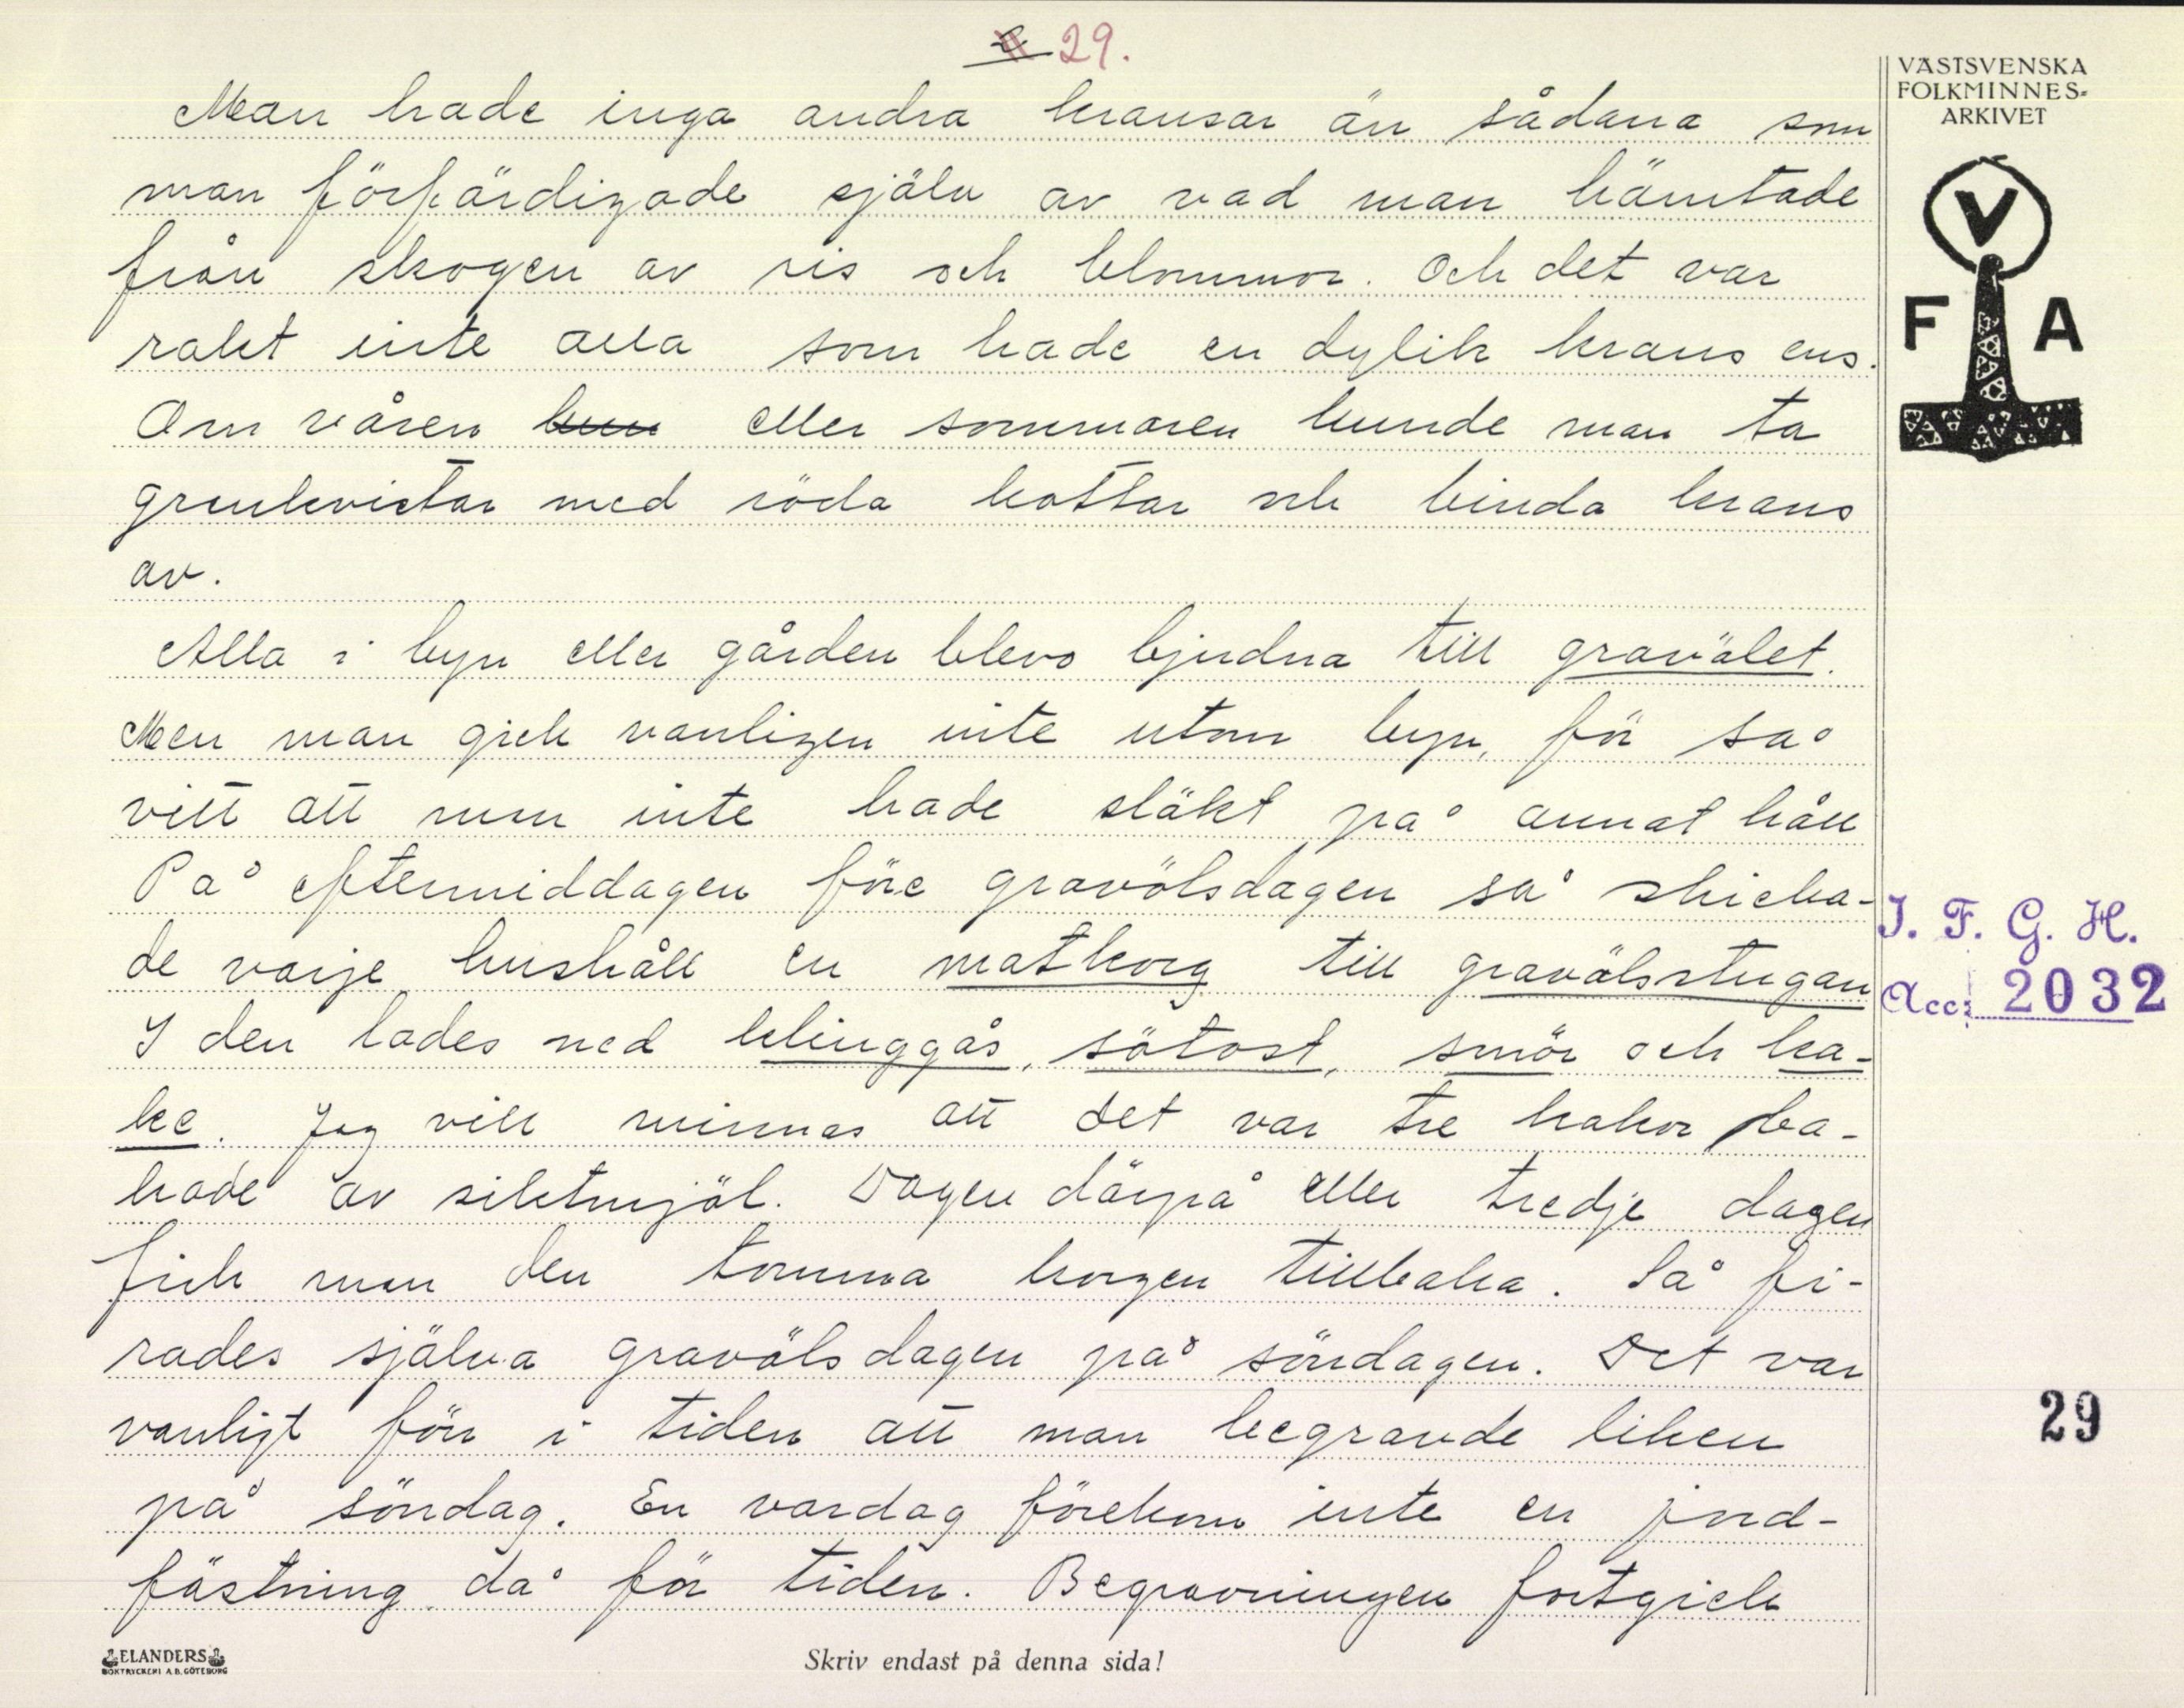 29.
VÄSTSVENSKA
FOLKMINNES-
ARKIVET
V
F A
Man hade inga andra kransar än sådana som
man förfärdigade själv av vad man hämtade
från skogen av ris och blommor. Och det var
rakt inte alla som hade en dylik krans ens.
Om våren kun eller sommaren kunde man ta
grenkvistar med röda kottar och binda krans
av.
Alla i byn eller gården blevo bjudna till gravölet.
Men man gick vanligen inte utom byn, för så
vitt att man inte hade släkt på annat håll
På eftermiddagen före gravölsdagen så skicka-
de varje hushåll en matkorg till gravölsstugan
I den lades ned klinggås, sötost, smör och ka-
ke. Jag vill minnas att det var tre kakor ba-
kade av siktmjöl. Dagen därpå eller tredje dagen
fick man den tomma korgen tillbaka. Så fi-
rades själva gravölsdagen på söndagen. Det var
vanligt förr i tiden att man begravde liken
på söndag. En vardag förekom inte en jord-
fästning då för tiden. Begravningen fortgick
I. F. G. H.
Acc: 2032
29
ELANDERS
BOKTRYCKERI A.B. GÖTEBORG
Skriv endast på denna sida!